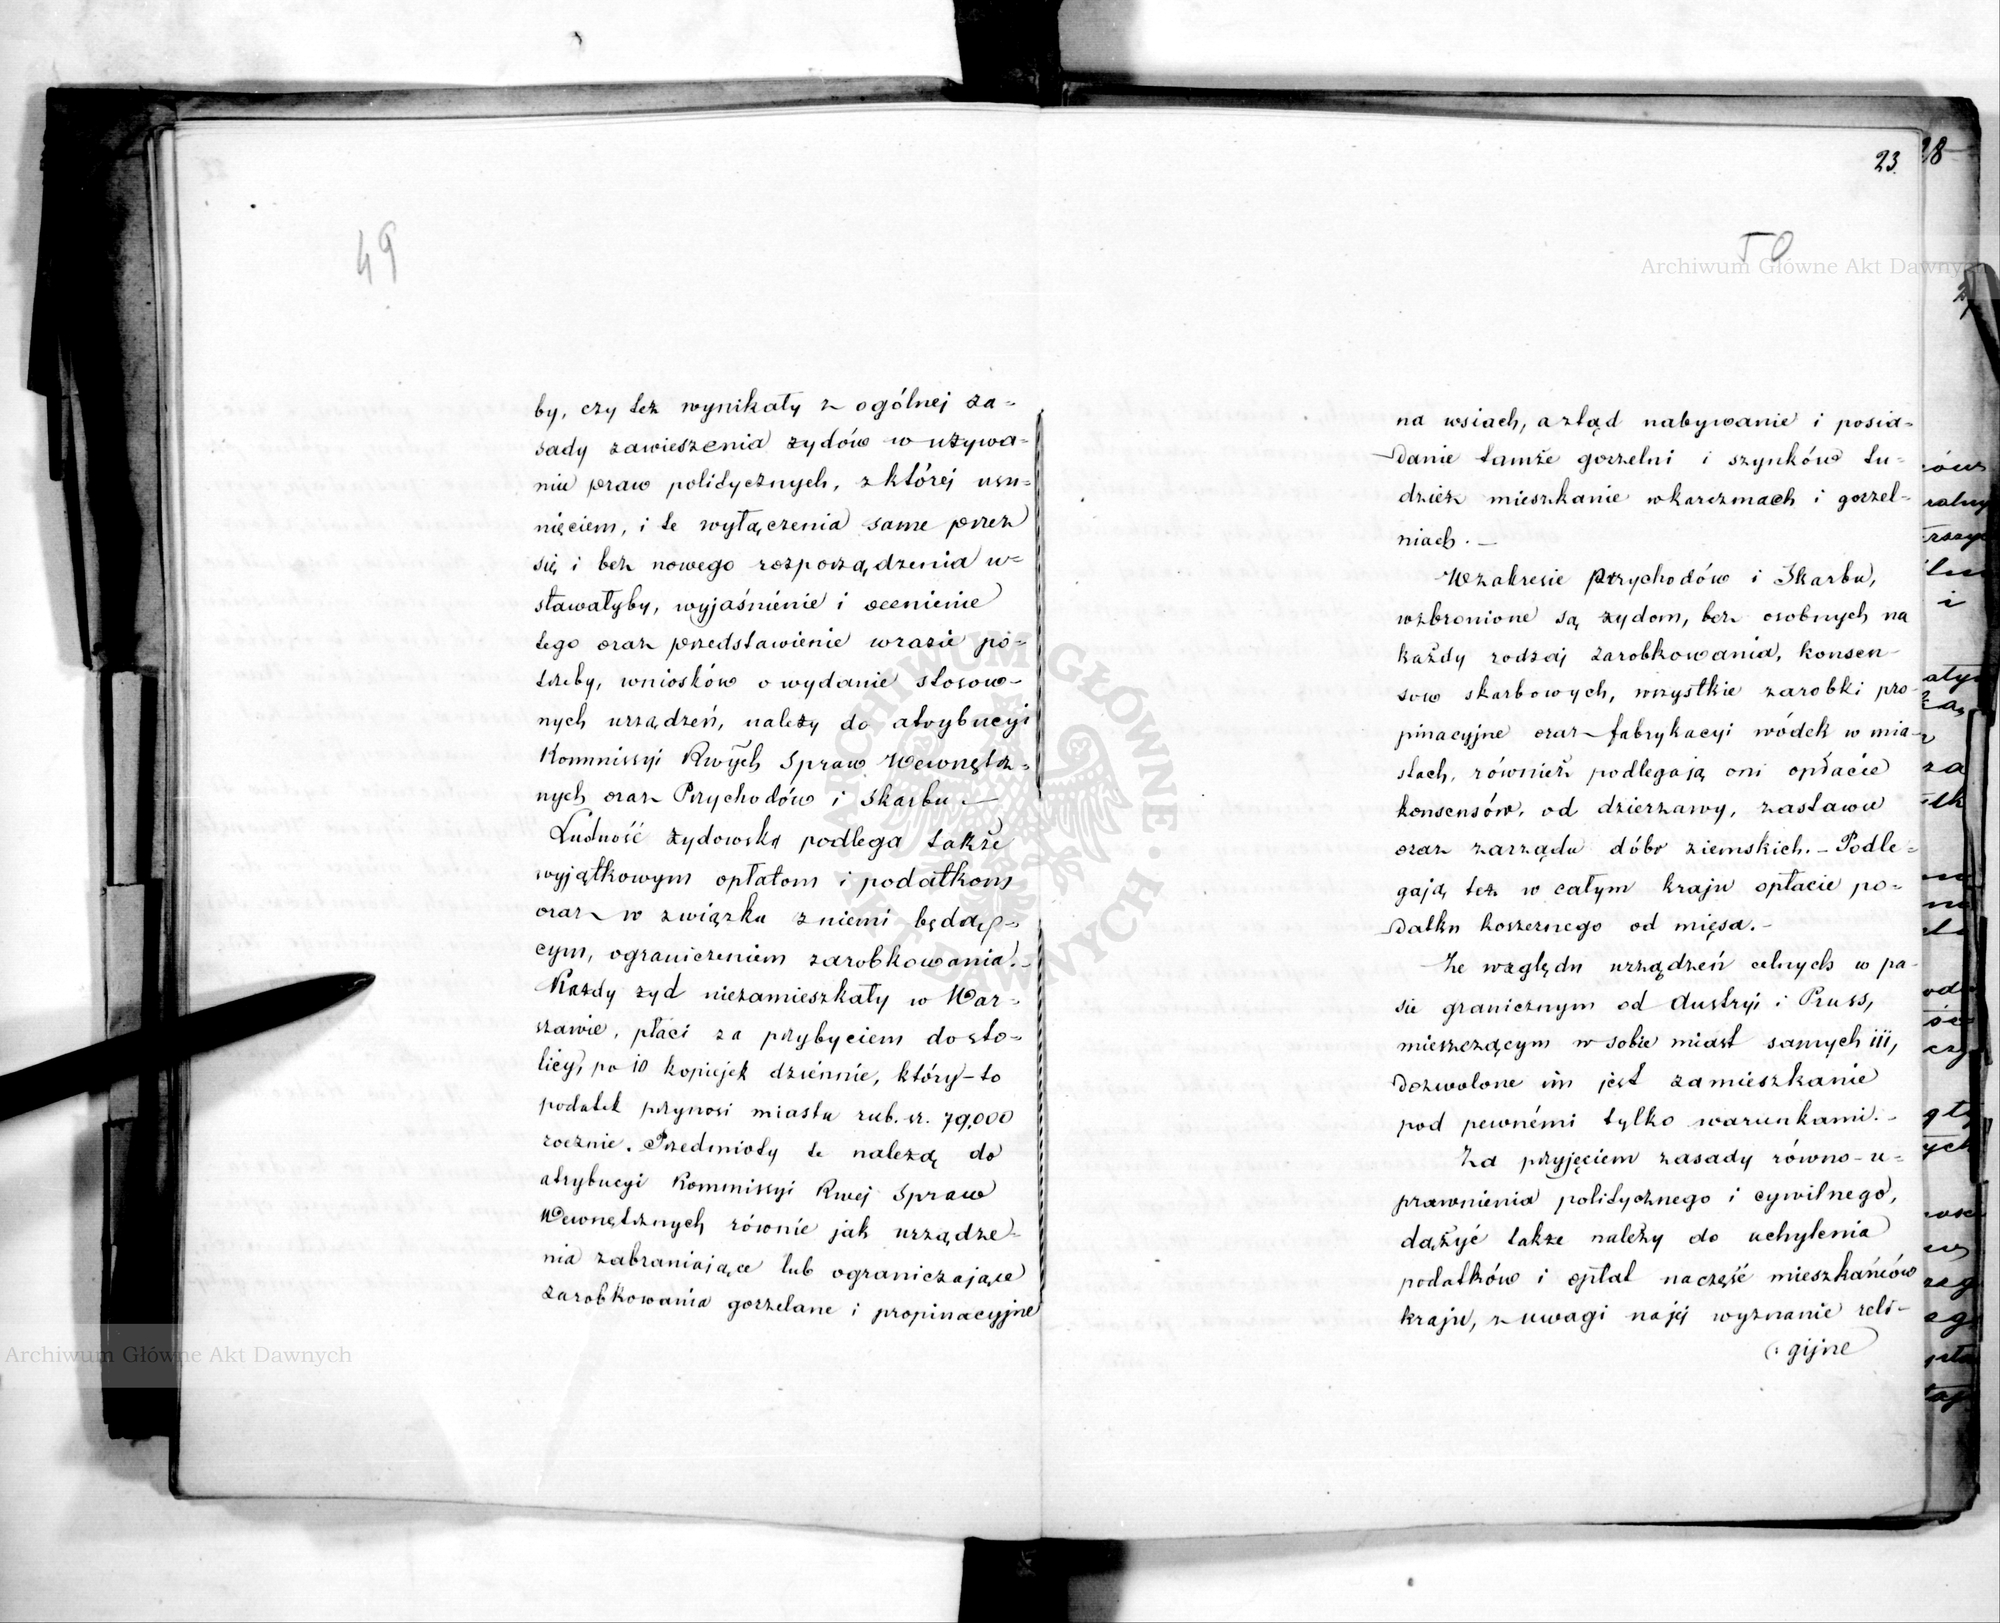 49
by, czy też wynikały z ogólnej za=
sady zawieszenia żydów w używa=
niu praw politycznych, z której usu=
nięciem, i te wyłączenia same przez
się i bez nowego rozporządzenia u=
stawałyby, wyjaśnienie i ocenienie
tego oraz przedstawienie wrazie po=
trzeby, wniosków o wydanie stosow=
nych urządzeń, należy do atrybucyi
Kommissyi Rwych Spraw Wewnętrz=
nych oraz Przychodów i Skarbu.—
Ludność żydowska podlega także
wyjątkowym opłatom i podatkom
oraz w związku z niemi będą=
cym, ograniczeniom zarobkowania.—
Każdy żyd niezamieszkały w War=
szawie, płaci za przybyciem do sto=
licy, po 10 kopiejek dziennie, który-to
podatek przynosi miastu rub. sr. 79,000
rocznie. Przedmioty te należą do
atrybucyi Kommissyi Rwej Spraw
Wewnętrznych równie jak urządze=
nia zabraniające lub ograniczające
zarobkowania gorzelane i propinacyjne
23.
50
na wsiach, a ztąd nabywanie i posia=
danie tamże gorzelni i szynków tu=
dzież mieszkanie w karczmach i gorzel=
niach.—
W zakresie Przychodów i Skarbu,
wzbronione są żydom, bez osobnych na
każdy rodzaj zarobkowania, konsen=
sów skarbowych, wszystkie zarobki pro=
pinacyjne oraz fabrykacyi wódek w mia=
stach, również podlegają oni opłacie
konsensów, od dzierżawy, zastawu
oraz zarządu dóbr ziemskich.— Podle=
gają też w całym kraju opłacie po=
datku koszernego od mięsa.—
Ze względu urządzeń celnych w pa=
sie granicznym od Austryi i Pruss,
mieszczącym w sobie miast samych 111,
dozwolone im jest zamieszkanie
pod pewnémi tylko warunkami.—
Za przyjęciem zasady równo-u=
prawnienia politycznego i cywilnego,
dążyć także należy do uchylenia
podatków i opłat na część mieszkańców
kraju, z uwagi na jéj wyznanie reli=
gijne
Archiwum Główne Akt Dawnych
Archiwum Główne Akt Dawnych
ARCHIWUM GŁÓWNE AKT DAWNYCH